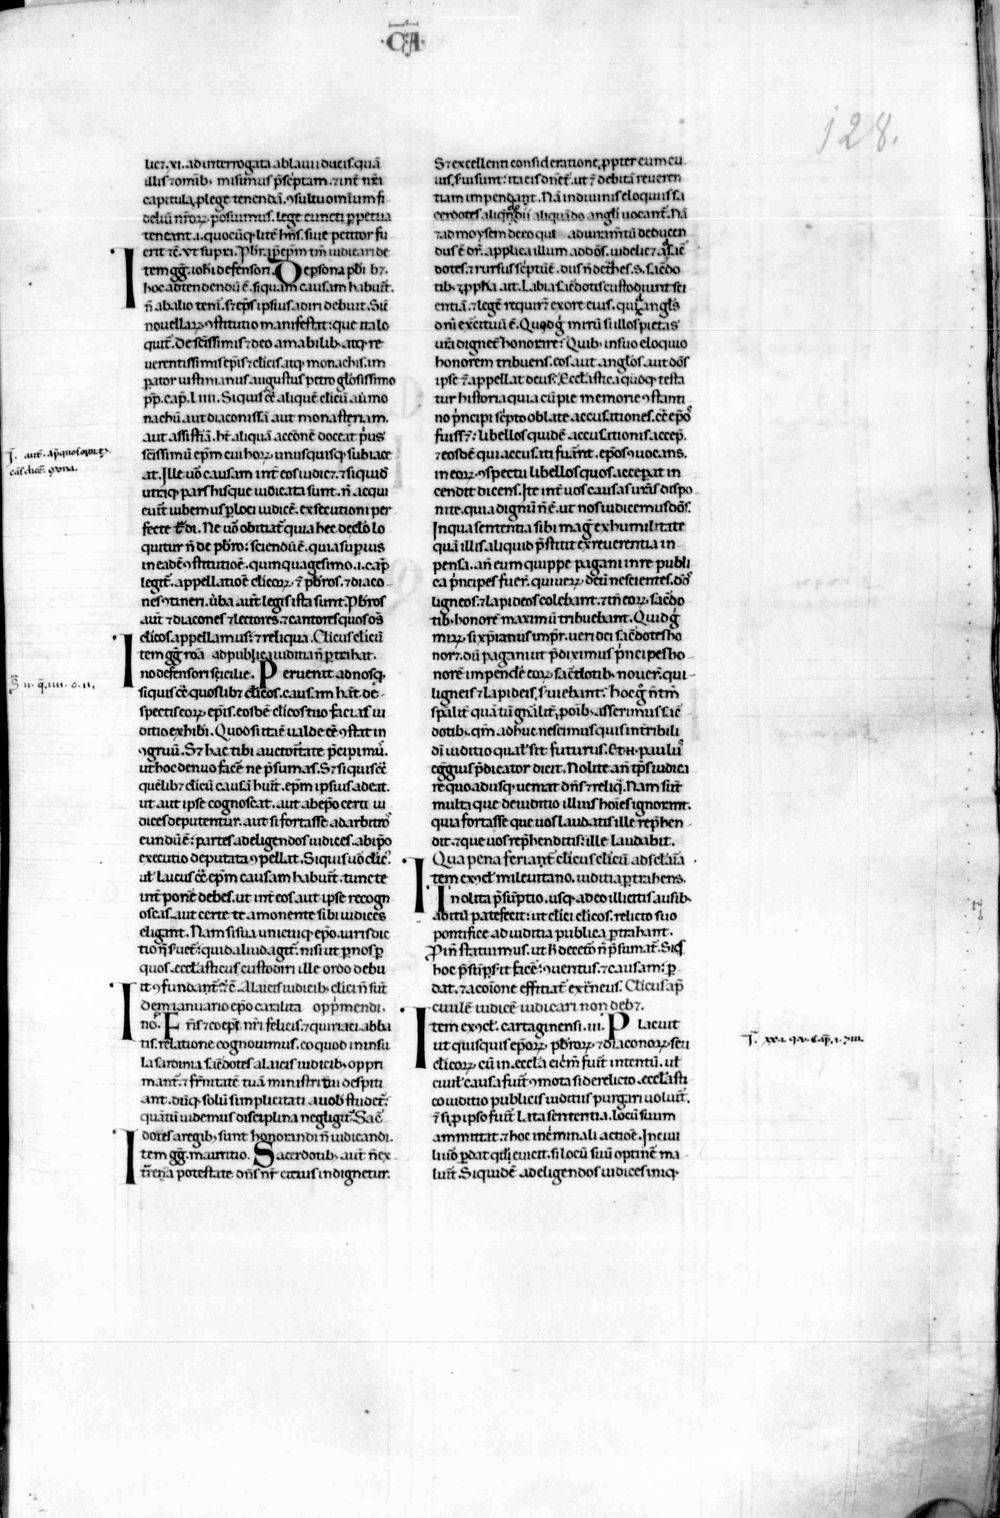 ·C͞A·
128.
licꝫ .xi. ad interrogata ablauii ducis. quā
illis ⁊ omib; misimus p̄sc̄ptam. ⁊ int̄ nr̄i
capitula ꝓ lege tenendā. ꝯsultu omīum fi
deliū nr̄oꝝ posuimus. lege cuncti perpetua
teneant .i. quocūq; lite hn̄s. siue petitor fu
erit ⁊c̄. vt supra. Pbr̄ ap̄ ep̄m tm̄ iudicari de
Item gḡ. ioh̄i defensori. De persona pbr̄i bꝫ.
hoc adtendendū ē. si quam causam habuit.
n̄ ab alio teni. sꝫ ep̄s ipsius adiri debuit. Sic̄
nouellaꝝ ꝯstitutio manifestat: que ita lo
quit᷑. De sc̄issimis ⁊ deo amabilib; atq; re
uerentissimis ep̄is ⁊ clicis. atq; monachis. im
ꝑator iustinianus augustus petro glōsissimo
pp̄. cap̄. l iiii. Si quis c̄ aliquē clicū aū mo
nachū. aut diaconissā. aut monasteriam.
aut assistriā. ht̄ aliquā accōnē doceat pͥus
sc̄issimū ep̄m cui hoꝝ unusquisq; subiace
at. Ille uō causam int̄ eos iudicꝫ. ⁊ siquid
utriq; pars hisque iudicata sunt. n̄ acqui
euit᷑ iubemus ꝑ loci iudicē. exsecutioni per
fecte t̄di. Ne uō obiciat᷑ quia hec decl̄o lo
quitur n̄ de pb̄ro: sciendū ē. quia superius
in eadē ꝯstitutiōē. quinquagesimo .i. cap̄
legit᷑. appellatiōe clicoꝝ. ⁊ pb̄ros. ⁊ diaco
nes ꝯtineri. ūba aut̄ legis ista sunt. Pb̄ros
aut̄ ⁊ diacones ⁊ lectores. ⁊ cantores quos os̄
clicos appellamus: ⁊ reliqua. Clicus clicū
Item gḡ rōā ad publica iuditia n̄ pertrahat.
no defensori sicilie. Peruenit ad nos q.
siquis c̄ quoslibꝫ clicos. causam hat̄ de
spectis eoꝝ ep̄is. eosdē clicos tuo facias iu
ditio exhibi. Quod si ita ē ualde c̄ē ꝯstat in
ꝯgruū. Sꝫ hac tibi auctor̄tate p̄cipimꝰ.
ut hoc denuo facē ne p̄sumas. Sꝫ si quis c̄
quēlibꝫ clicū causā huit᷑. ep̄m ipsius adeat.
ut aut ipse cognoscat. aut ab ep̄o certi iu
dices deputentur. aut si fortasse ad arbitros
eundū ē: partes ad eligendos iudices. ab ip̄o
executio deputata ꝯpellat. Si quis uō clic᷑.
ul̄ laicus c̄. ep̄m causam habuit᷑. tunc te
int̄ ponē debes. ut int̄ eos aut ipse recogn
oscas. aut certe te amonente sibi iudices
eligant. Nam si sua unicuiq; ep̄o. iurisdic
tio n̄ s̄uet᷑: quid aliud agit᷑. nisi ut ꝑ nos ꝑ
quos. eccl̄asticus custodiri ille ordo debu
it ꝯfundat᷑ ⁊c̄. A laicis iudicib; clici n̄ sūt
Idem ianuario ep̄o caralita oppͥmendi.
no. Frn̄s ⁊ coep̄i nr̄i felicis. ⁊ quiriaci abba
tis. relatione cognouimus. eo quod in insu
la sardinia sac̄dotes a laicis iudicib; oppri
mant᷑. ⁊ fr̄nitatē tuā ministri tui despiti
ant. dūq; solū simplicitati a uob̄ studet᷑:
quātū uidemus disciplina negligit᷑. Sac̄
dotes a regib; sunt honorandi n̄ iudicandi.
Item gḡ. mauritio. Sacerdotib; aut̄ n̄ ex
tr̄ena potestate dn̄s nr̄ citius indignetur.
Sꝫ excellenti consideratione, ꝓpter eum cui
uis. s̄ui sunt: ita eis dn̄et᷑. ut ⁊ debitā reueren
tiam impendant. Nā in diuinis eloquiis sa
cerdotes aliqn̄ dii aliquādo angl̄i uocant᷑. Nā
⁊ ad moysem de eo qui ad iuramtū deducen
dus ē dr̄. applica illum ad dōs. uidelicꝫ ad sac̄
dotes. ⁊ rursus sc̄ptū ē. diis n̄ det̄hes. s̄. sac̄do
tib;. ⁊ ꝓph̄a ait. Labia sac̄dotis custodiunt sci
entiā. ⁊ legē requirꝫ ex ore eius. quia angl̄s
dn̄i exc̄ituū ē. Quid g̊ mirū si illos pietas
ur̄a dignet᷑ honorare: Quib; in suo eloquio
honorem tribuens. eos aut anglos. aut dōs
ipse ⁊ appellat deus: Eccl̄astica quoq; testa
tur historia quia cū pie memorie ꝯstanti
no pͥncipi sc̄pto oblate accusationes. c̄ ep̄os
fuissꝫ: libellos quidē accusationis accep.
⁊ eosdē qui accusati fuānt. ep̄os ꝯuocans.
in eoꝝ ꝯspectu libellos quos acceperat in
cendit dicens. Ite int̄ uos causas ur̄as dispo
nite. quia dignū n̄ ē. ut nos iudicemus dōs.
In qua sententia sibi mag̊ ex humilitate
quā illis aliquid p̄stitit ex reuerentia in
pensa. an̄ eum quippe pagani in re publi
ca pͥncipes fuer̄. qui ueꝝ deū nescientes. dōs
ligneos ⁊ lapideos colebant. ⁊ tn̄ eoꝝ sac̄do
tib; honorē maximū tribuebant. Quid g̊
miꝝ si xp̄ianus impr̄. ueri dei sac̄dotes ho
norꝫ. dū pagani ut p̄diximus pͥncipes ho
norē impendē eoꝝ sac̄dotib; nouer̄. qui
ligneis ⁊ lapideis. s̄uiebant. Hoc g̊ n̄ tm̄
sp̄alit᷑ quā tū gn̄alit᷑. poib; asserimus sac̄
dotib;. qm̄ adhuc nescimus quis in t̄ribili
dī iuditio qual̄ sit futurus. Et bt̄. paulus
eg̊gius p̄dicator dicit. Nolite an̄ tp̄s iudica
re quoadusq; ueniat dn̄s ⁊ reliq̄. Nam sūt
multa que de iuditio illius hoīes ignorant.
quia fortasse que uos laudatis ille rep̄hen
dit. ⁊ que uos rep̄henditis: ille laudabit.
Qua pena feriant᷑ clicus clicū ad sclārīa
Item ex ꝯcl̄. mileuitano. iuditia ꝑtrahens.
Inolita p̄sūptio. usq; adeo illicitis ausib;
aditū patefecit: ut clici clicos. relicto suo
pontifice ad iuditia publica ꝑtrahant.
Proin̄ statuimus. ut h̄ de cet̄o n̄ p̄sumat᷑. Siq̄s
hoc p̄sūps̄it facē: ꝯuentus. ⁊ causam: ꝑ
dat. ⁊ a coīone efficiat᷑ extͣneus. Clicus ap̄
ciuilē iudicē iudicari non debꝫ.
Item ex ꝯcl̄. cartaginensi .iii. Placuit
ut quisquis ep̄oꝝ. pb̄roꝝ. ⁊ diaconoꝝ seu
clicoꝝ. cū in eccl̄a eiēm̄ fuit᷑ intentū. ul̄
ciuil̄ causa fuit᷑ ꝯmota si derelicto. eccl̄asti
co iuditio publicis iuditiis purgari uoluit᷑.
⁊ si ꝓ ipso fuit᷑ lata sententia. locū suum
ammittat. ⁊ hoc in cͥminali actiōe. In ciui
li uō ꝑdat q̄d euicit. si locū suū optinē ma
luit᷑. Si quidē ad eligendos iudices iniq;